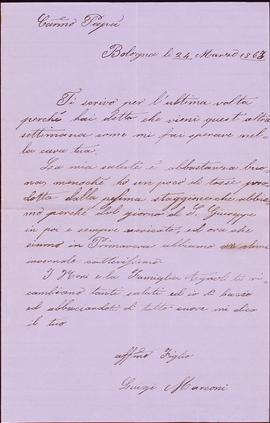 Carmo Papà
Bologna li 24 Marzo 186
Ti scrivo per l'ultima volta
perchè hai detto che vieni quest'altra
settimana come mi fai sperare nel-
la cara tua.
La mia salute è abbastanza buo-
na, menochè ho un poco di tosse pro-
dotta dalla pessima stagione che abbia-
mo perchè dal giorno di S. Giuseppe
in poi è sempre nevicato, ed ora che
siamo in Primavera abbiamo un
invernale
I Noni e la Famiglia ti ri-
cambiano tanti saluti ed io ti bacio
ed abbracciandoti di tutto cuore mi dico
il tuo
affmo Figlio
Luigi Marconi